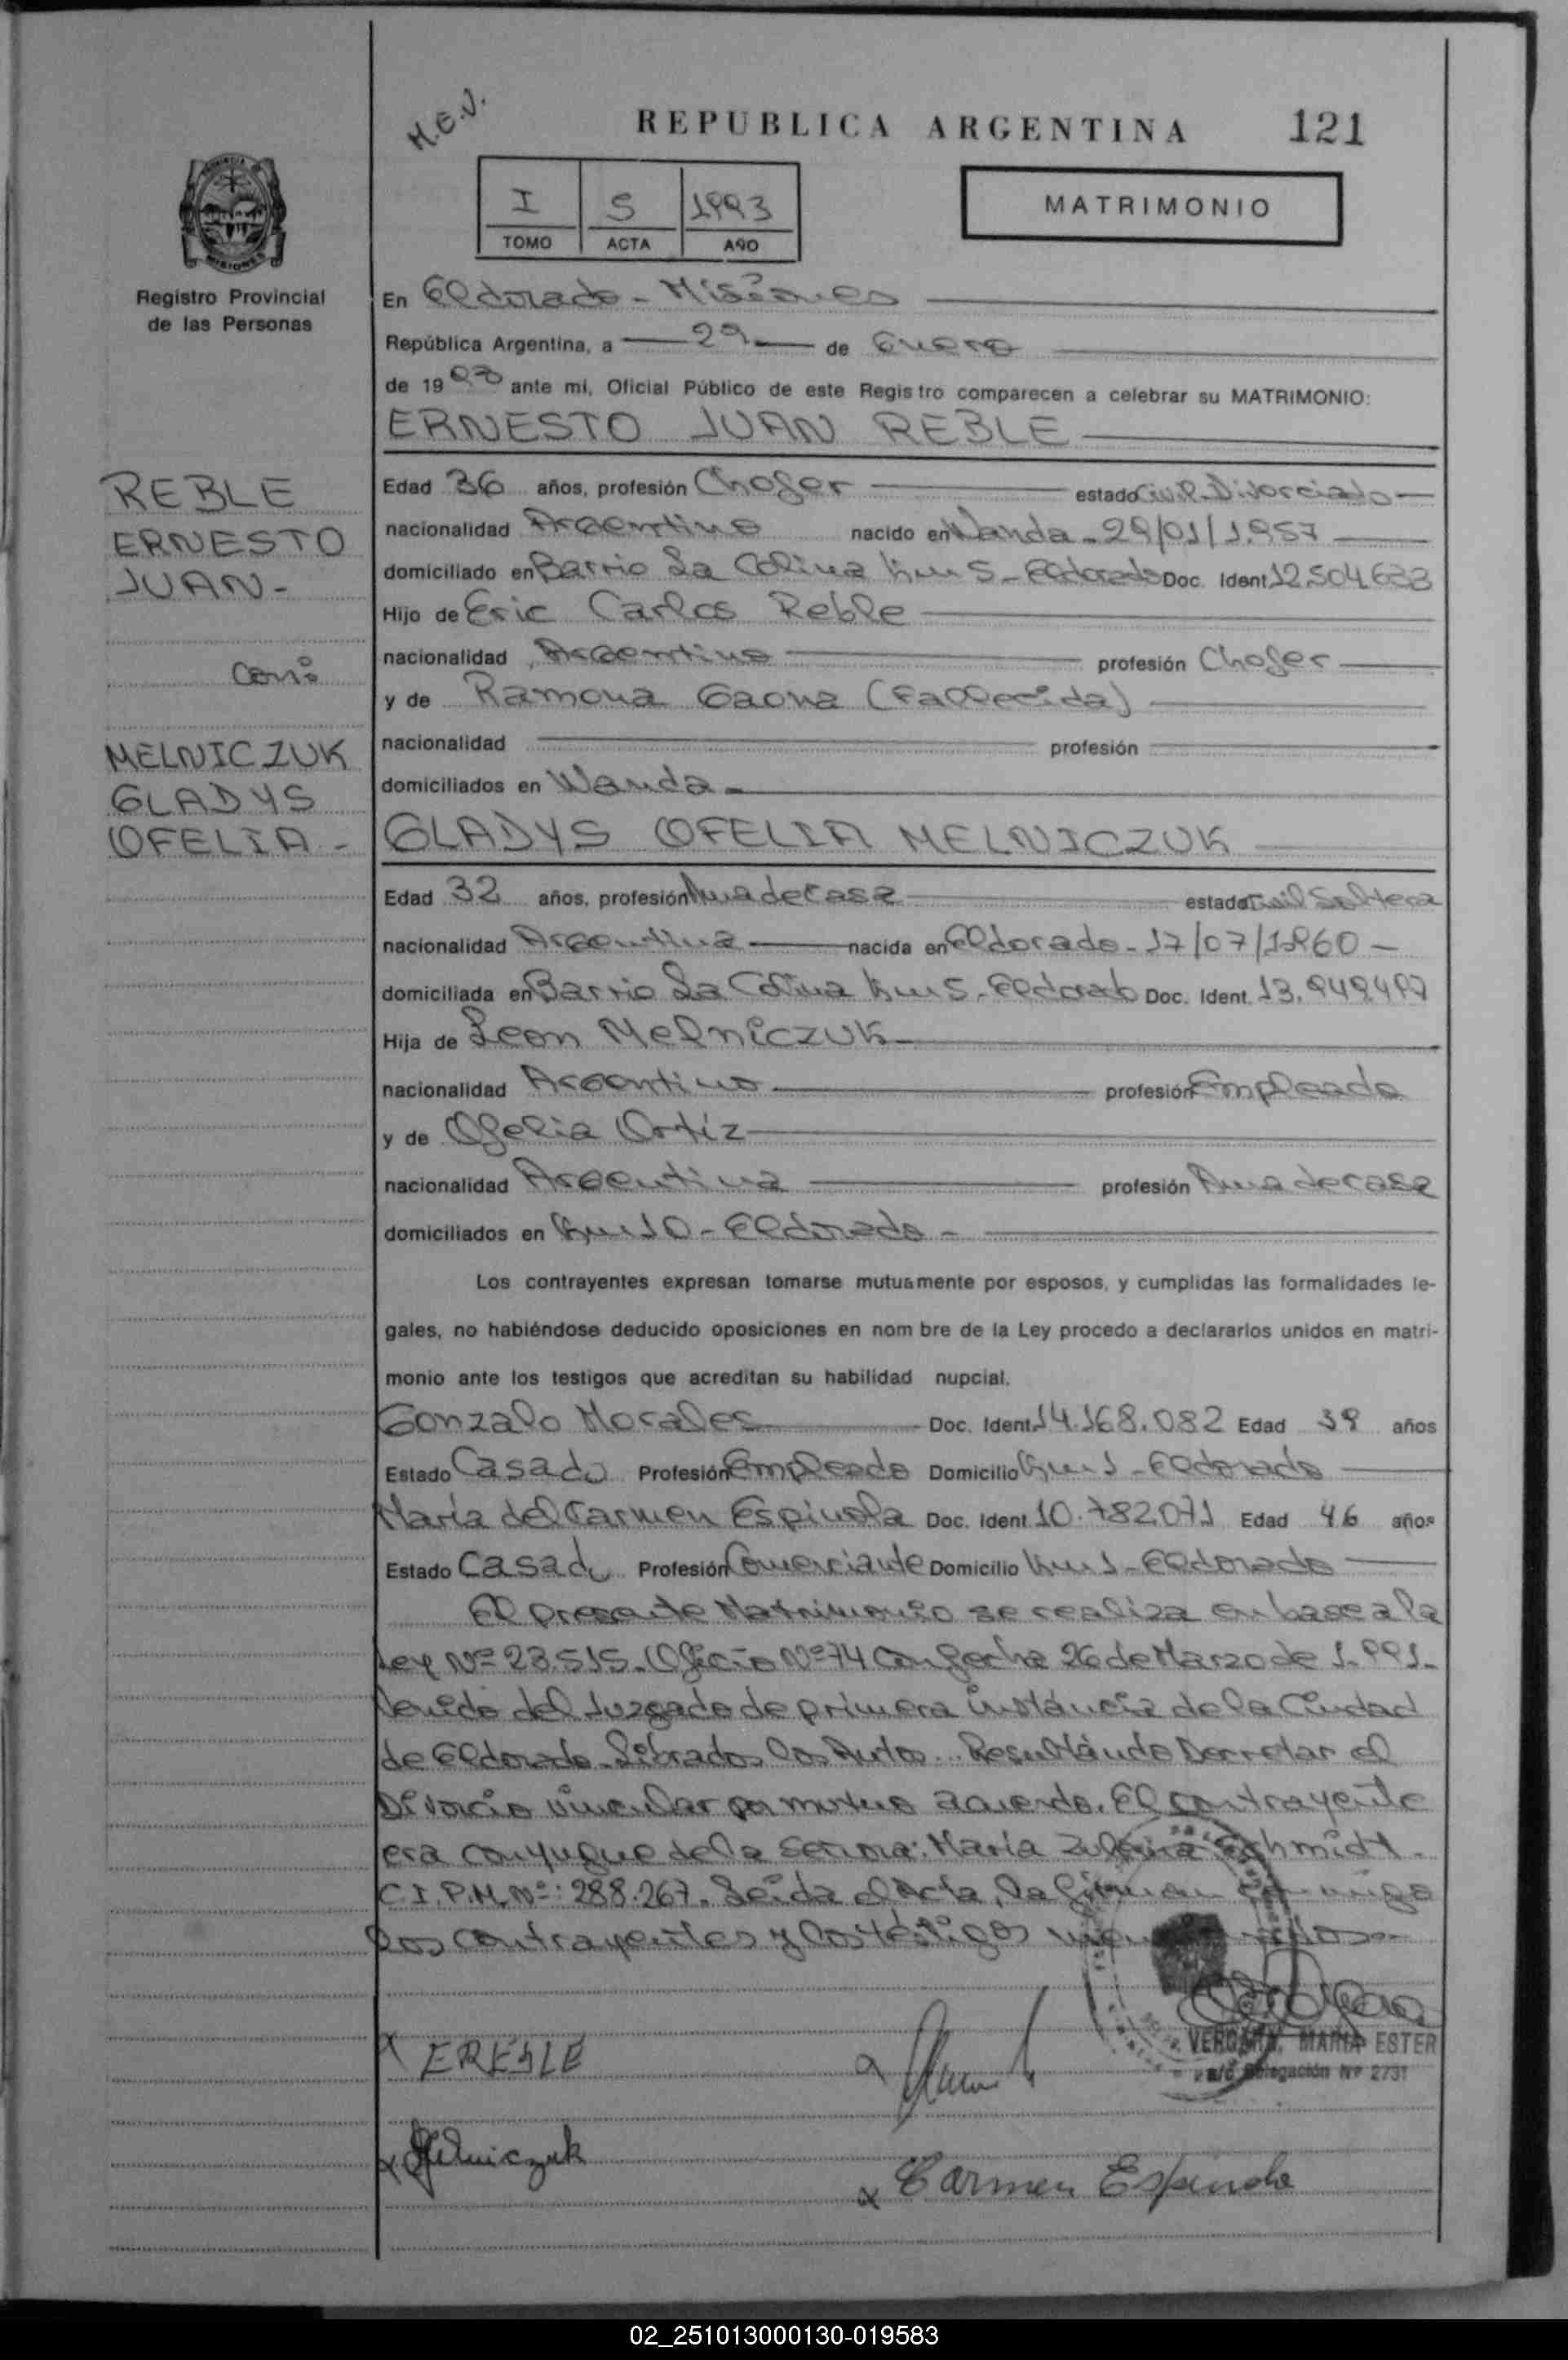 H.E.V.
REPUBLICA ARGENTINA 121
I S 1993
TOMO ACTA AÑO
MATRIMONIO
MISIONES
Registro Provincial
de las Personas
En Eldorado - Misiones
República Argentina, a 29 de Enero
de 1993 ante mi, Oficial Público de este Registro comparecen a celebrar su MATRIMONIO:
ERNESTO JUAN REBLE
REBLE
ERNESTO
JUAN-
con:
MELNICZUK
GLADYS
OFELIA-
Edad 36 años, profesión Chofer estado Civil Divorciado
nacionalidad Argentino nacido en Wanda - 29/01/1.957
domiciliado en Barrio La Colina Km 5 - Eldorado Doc. Ident 12.504.633
Hijo de Eric Carlos Reble
nacionalidad Argentino profesión Chofer
y de Ramona Gaona (Fallecida)
nacionalidad profesión
domiciliados en Wanda -
GLADYS OFELIA MELNICZUK
Edad 32 años, profesión Ama de casa estado Civil Soltera
nacionalidad Argentina nacida en Eldorado - 17/07/1960 -
domiciliada en Barrio La Colina Km 5 - Eldorado Doc. Ident. 13.949.497
Hija de Leon Melniczuk
nacionalidad Argentino profesión Empleado
y de Ofelia Ortiz
nacionalidad Argentina profesión Ama de casa
domiciliados en Km 10 - Eldorado -
Los contrayentes expresan tomarse mutuamente por esposos, y cumplidas las formalidades le-
gales, no habiéndose deducido oposiciones en nombre de la Ley procedo a declararlos unidos en matri-
monio ante los testigos que acreditan su habilidad nupcial.
Gonzalo Morales Doc. Ident. 14.168.082 Edad 39 años
Estado Casado Profesión Empleado Domicilio Km 1 - Eldorado
María del Carmen Espinola Doc. Ident 10.782.071 Edad 46 años
Estado Casada Profesión Comerciante Domicilio Km 1 - Eldorado
El presente Matrimonio se realiza en base a la
Ley Nº 23.515. Oficio Nº 74 con fecha 26 de Marzo de 1.991.
Venido del Juzgado de primera instáncia de la Ciudad
de Eldorado. Librados los Autos... Resultándo Decretar el
Divorcio vincular por mutuo acuerdo. El contrayente
era conyugue de la Señora: María Schmidt.
C.I.P.M. Nº: 288.267. Leída el Acta, la firman conmigo
los contrayentes y los testigos mencionados.-
X EREBLE
VERGARA, MARIA ESTER
a/c Delegación Nº 2731
X Melniczuk
X Carmen Espinola
02_251013000130-019583